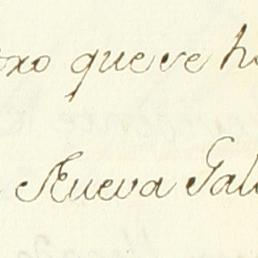 oxo que ve h
Nueva Gal